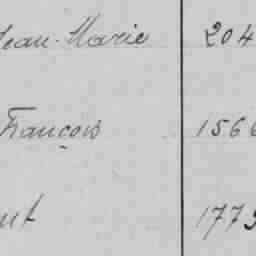 Jean-Marie 204
François 1566
1775